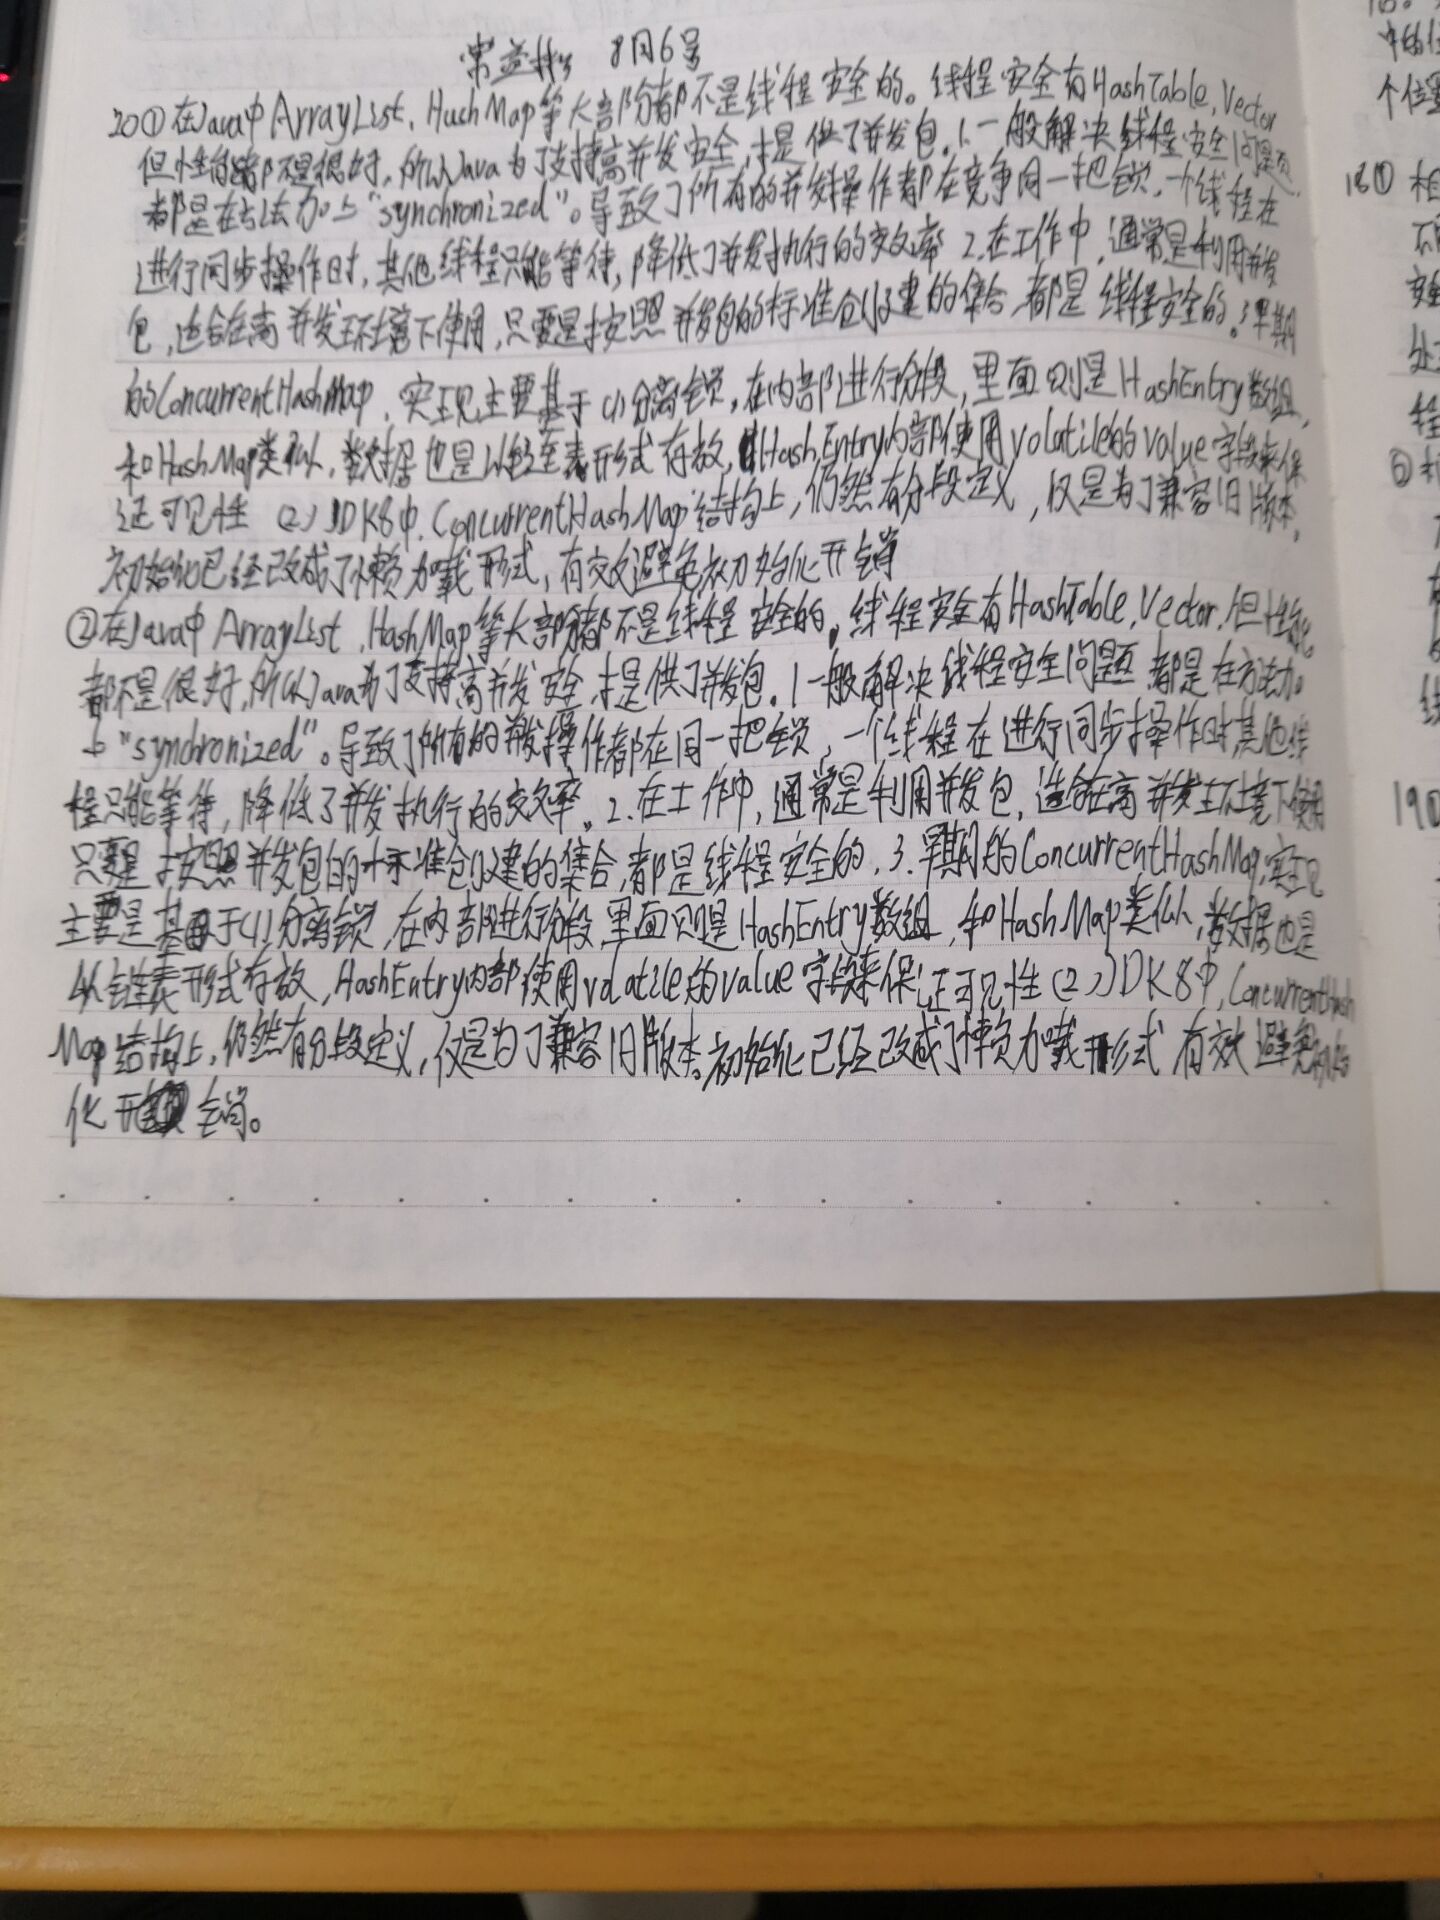 8月6号
20①在Java中ArrayList、HushMap等大部分都不是线程安全的。线程安全有HashTable,Vector
但性能都不是很好,所以Java为了支持高并发安全,提供了并发包.1.一般解决线程安全问题
都是在方法加上"synchronized"。导致了所有的并发操作都在竞争同一把锁,一个线程在
进行同步操作时,其他线程只能等待,降低了并发执行的效率 2.在工作中,通常是利用并发
包,适合在高并发环境下使用,只要是按照并发包的标准创建的集合,都是线程安全的.3早期
的ConcurrentHashMap,实现主要基于(1)分离锁,在内部进行分段,里面则是HashEntry数组,
和HashMap类似,数据也是以链表形式存放,HashEntry内部使用volatile的value字段来保
证可见性 (2)JDK8中.ConcurrentHashMap结构上,仍然有分段定义,仅是为了兼容旧版本,
初始化已经改成了懒加载形式,有效避免初始化开销
②在Java中ArrayList,HashMap等大部分都不是线程安全的,线程安全有HashTable,Vector,但性能
都不是很好,所以Java为了支持高并发安全,提供了并发包.1一般解决线程安全问题,都是在方法加
上"synchronized"。导致了所有的并发操作都在同一把锁,一个线程在进行同步操作时其他线
程只能等待,降低了并发执行的效率。2.在工作中,通常是利用并发包,适合在高并发环境下使用
只要是按照并发包的标准创建的集合,都是线程安全的.3.早期的ConcurrentHashMap,实现
主要是基于(1)分离锁,在内部进行分段,里面则是HashEntry数组,和HashMap类似,数据也是
以链表形式存放,HashEntry内部使用volatile的value字段来保证可见性(2)JDK8中,ConcurrentHash
Map结构上,仍然有分段定义,仅是为了兼容旧版本.初始化已经改成了懒加载形式 有效避免初始
化开销。
18①相
处
程
19①
个位置